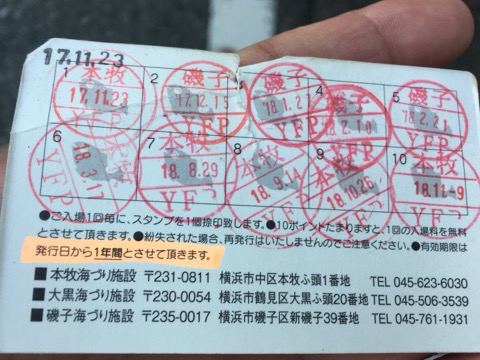 17.11.23
1 2 3 4 5
本牧 17.11.23 YFP
磯子 17.12.15 YFP
磯子 18.1.21 YFP
磯子 18.2.10 YFP
磯子 18.2.21 YFP
6 7 8 9 10
18.3.11 YFP
本牧 18.8.29 YFP
本牧 18.9.14
本牧 18.10.26
本牧 18.11.-9
●ご入場1回毎に、スタンプを1個捺印致します。●10ポイントたまりますと、1回の入場料を無料
とさせて頂きます。●紛失された場合、再発行はいたしませんのでご注意ください。●有効期限は
発行日から1年間とさせて頂きます。
■本牧海づり施設 〒231-0811 横浜市中区本牧ふ頭1番地 TEL 045-623-6030
■大黒海づり施設 〒230-0054 横浜市鶴見区大黒ふ頭20番地 TEL 045-506-3539
■磯子海づり施設 〒235-0017 横浜市磯子区新磯子39番地 TEL 045-761-1931